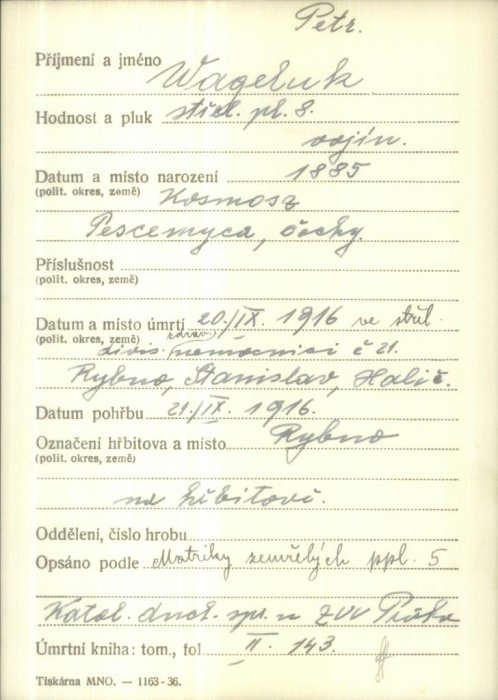 Petr.
Příjmení a jméno Wageluk
Hodnost a pluk střel. pl. 8.
vojín.
Datum a místo narození 1885
(polit. okres, země) Kosmosz
Pescemyca, čechy.
Příslušnost
(polit. okres, země)
Datum a místo úmrtí 20./IX. 1916 ve střel.
(polit. okres, země) divis. zdrav. nemocnici č 21.
Rybno, Stanislav, Halič.
Datum pohřbu 21./IX. 1916.
Označení hřbitova a místo Rybno
(polit. okres, země)
na hřbitově.
Oddělení, číslo hrobu
Opsáno podle Matriky zemřelých ppl. 5
Katol. duch. spr. u ZVV Praha
Úmrtní kniha: tom., fol II. 143.
Tiskárna MNO. — 1163-36.